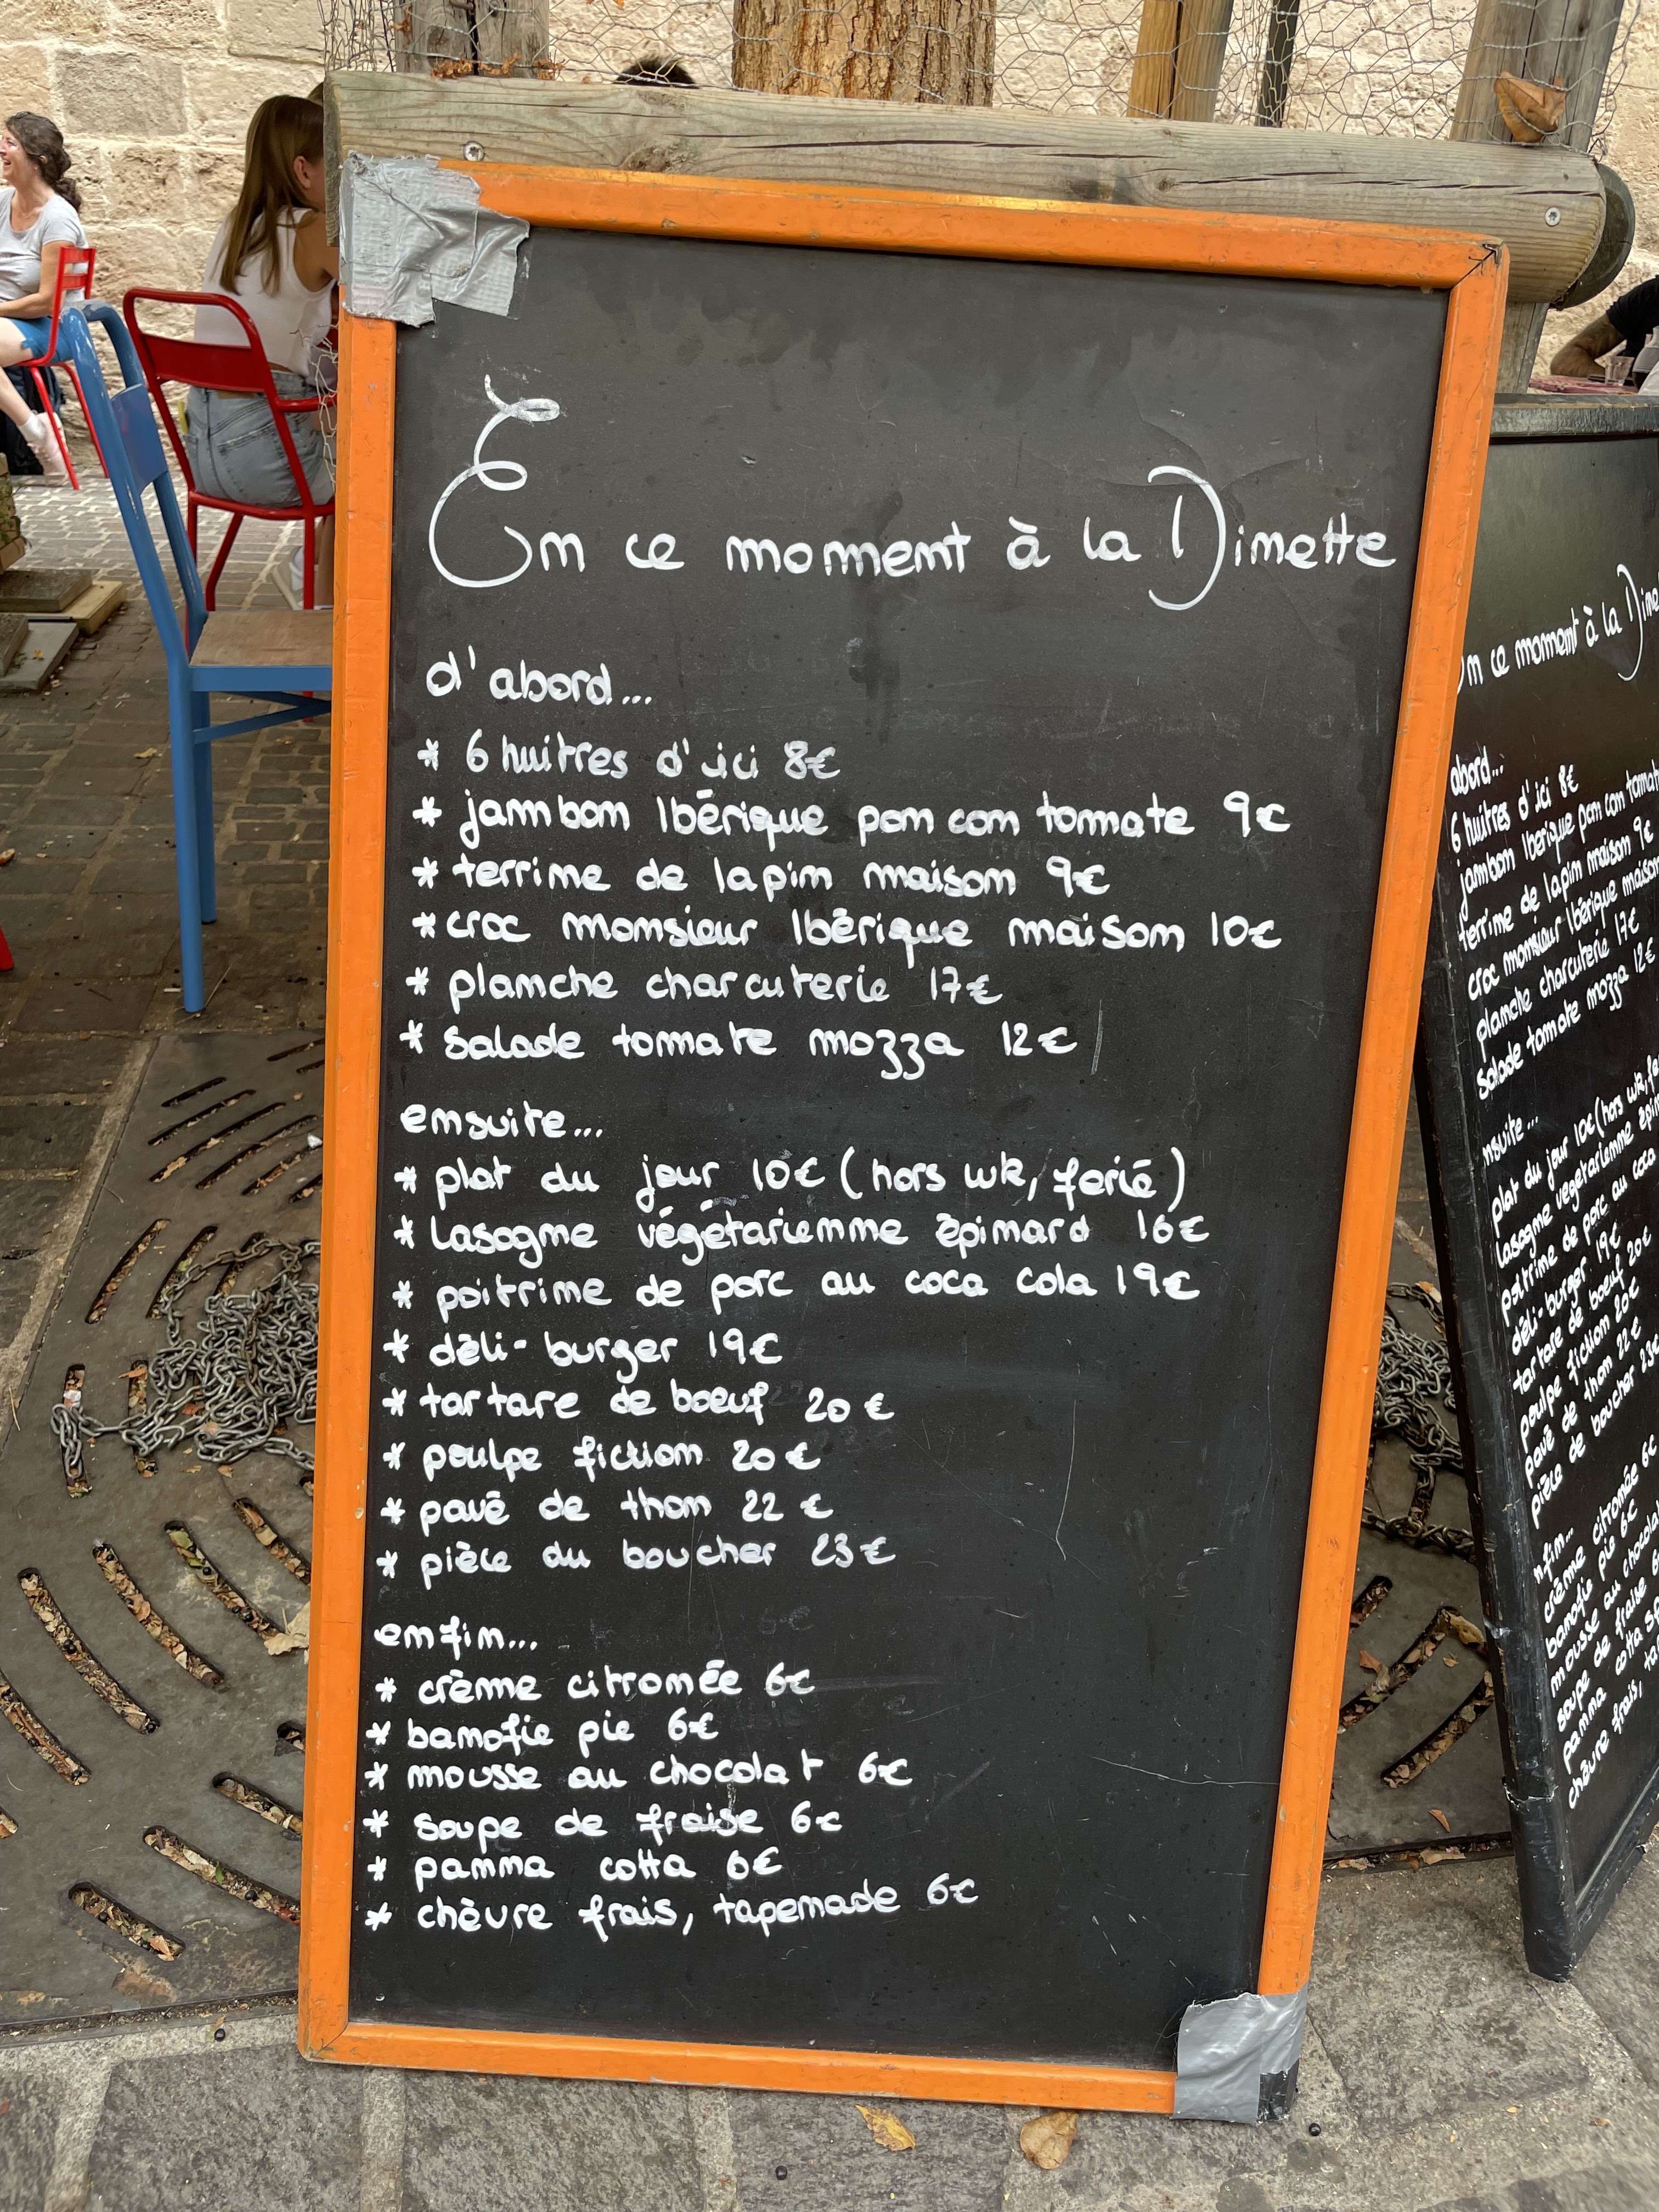 En ce moment à la Dinette
d'abord...
* 6 huitres d'ici 8€
* jambon Ibérique pan con tomate 9€
* terrine de lapin maison 9€
* croc monsieur Ibérique maison 10€
* planche charcuterie 17€
* Salade tomate mozza 12€
ensuite...
* plat du jour 10€ (hors wk, ferié)
* lasagne végétarienne épinard 16€
* poitrine de porc au coca cola 19€
* déli-burger 19€
* tartare de boeuf 20€
* poulpe fiction 20€
* pavé de thon 22€
* pièce du boucher 23€
enfin...
* crème citronnée 6€
* banofie pie 6€
* mousse au chocolat 6€
* soupe de fraise 6€
* panna cotta 6€
* chèvre frais, tapenade 6€
n ce moment à la Dine
abord...
6 huitres d'ici 8€
jambon Iberique pan con tomate
terrine de lapin maison 9€
croc monsieur Ibérique maison
planche charcuterie 17€
Salade tomate mozza 12€
nsuite...
plat du jour 10€ (hors wk, fe
lasagne végétarienne épin
poitrine de porc au coca
déli-burger 19€
tartare de boeuf 20€
poulpe fiction 20€
pavé de thon 22€
pièce de boucher 23€
nfin...
crème citronnée 6€
banofie pie 6€
mousse au chocolat
soupe de fraise 6
panna cotta
chèvre frais, ta